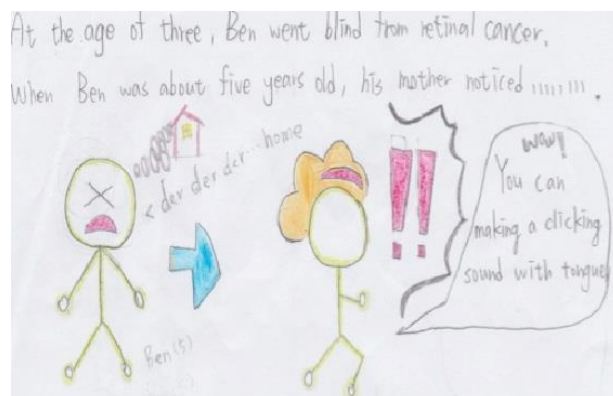 At the age of three, Ben went blind from retinal cancer.
When Ben was about five years old, his mother noticed ........
< der der der... home
Ben(5)
!!
wow!
You can
making a clicking
sound with tongue